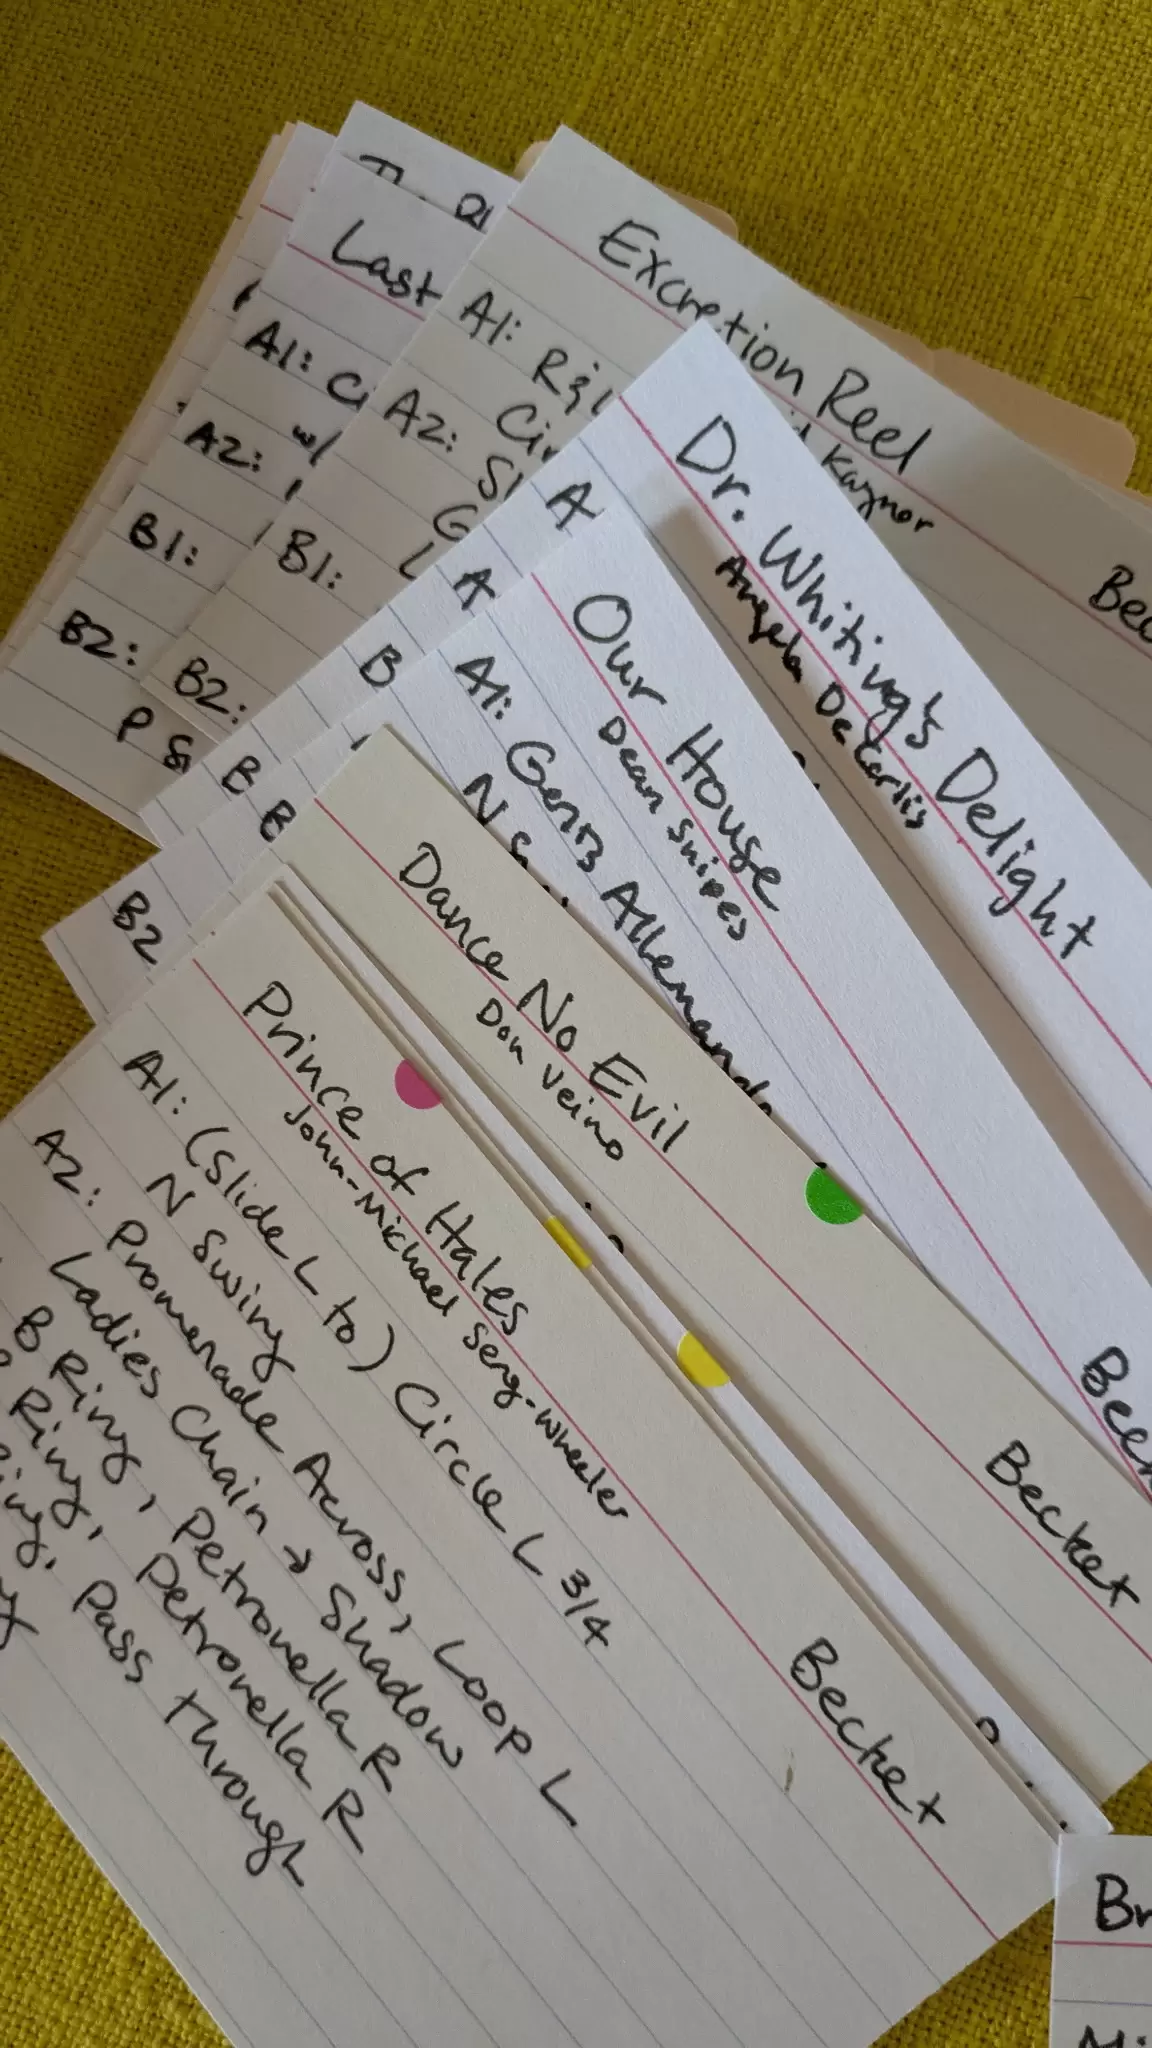 Excretion Reel
Kaynor
A1: R&L
A2:
B1:
B2:
Last
A1:
w/
A2:
B1:
B2:
P
Dr. Whiting's Delight
Angela DeCarlis
A
A
B
B
Our House
Dean Snipes
A1: Gents Allemande
N
B
B2
Dance No Evil
Don Veino
Becket
Prince of Hales
John-Michael Seng-Wheeler
Becket
A1: (Slide L to) Circle L 3/4
N Swing
A2: Promenade Across, Loop L
Ladies Chain → Shadow
B Ring, Petronella R
Ring, Petronella R
Pass Through